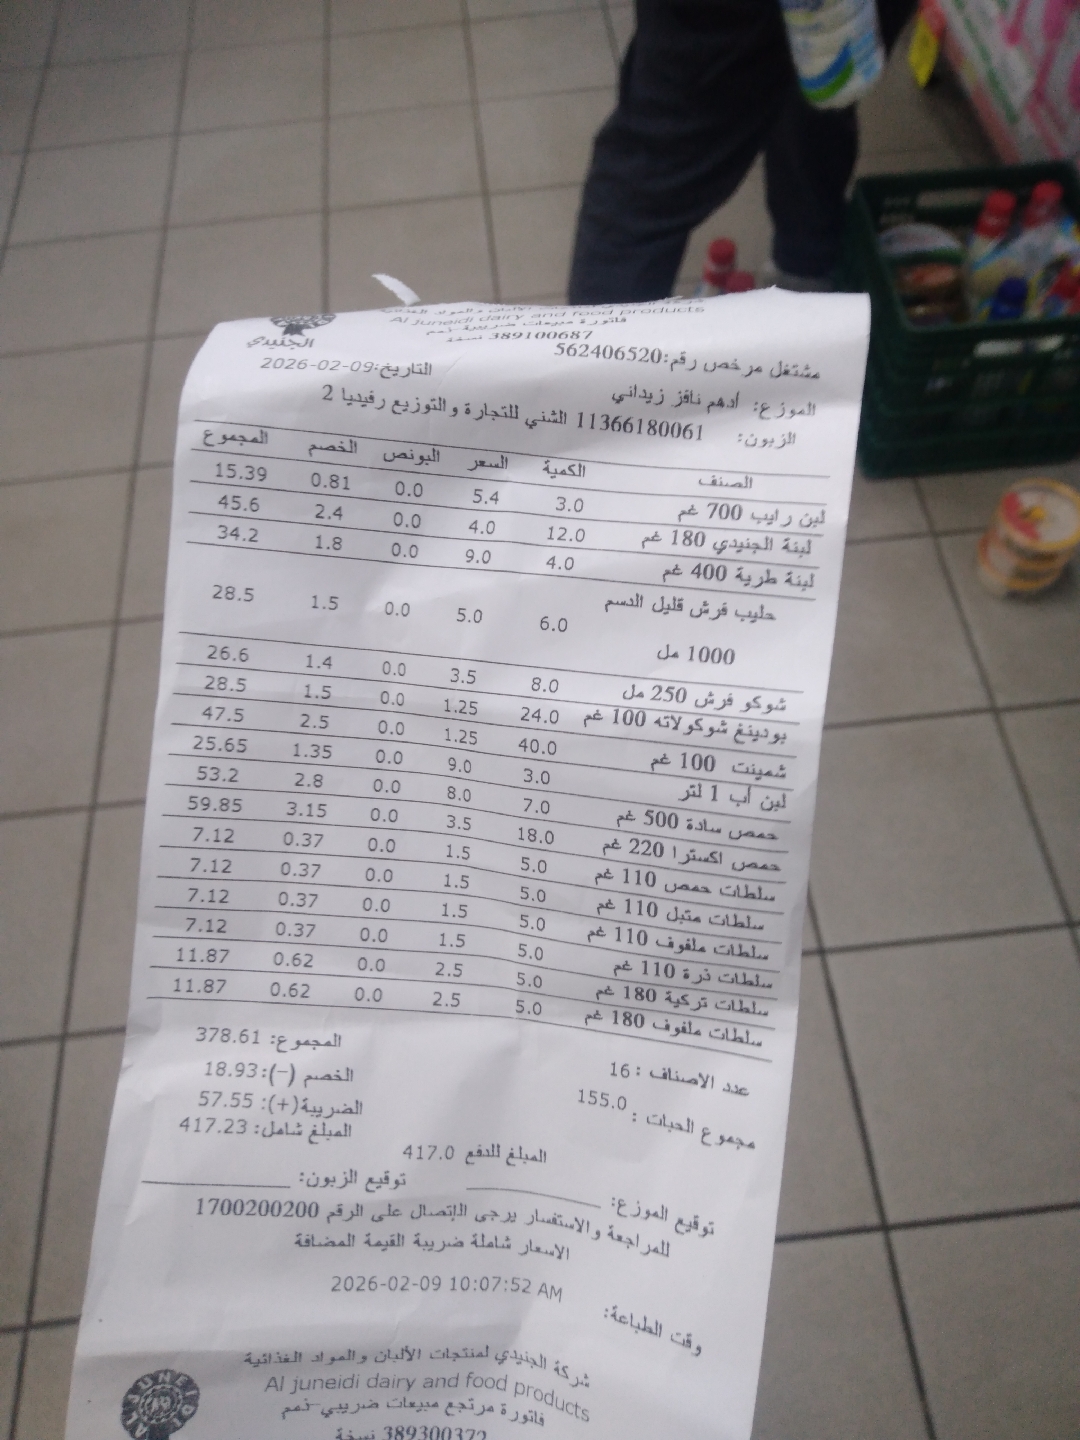 Al juneidi dairy and food products
فاتورة مبيعات ضريبية-ذمم
389100687 نسخة
الجنيدي
مشتغل مرخص رقم:562406520
التاريخ:2026-02-09
الموزع: أدهم نافز زيداني
الزبون: 11366180061 الشني للتجارة والتوزيع رفيديا 2
الصنف الكمية السعر البونص الخصم المجموع
لبن رايب 700 غم 3.0 5.4 0.0 0.81 15.39
لبنة الجنيدي 180 غم 12.0 4.0 0.0 2.4 45.6
لبنة طرية 400 غم 4.0 9.0 0.0 1.8 34.2
حليب فرش قليل الدسم 6.0 5.0 0.0 1.5 28.5
1000 مل
شوكو فرش 250 مل 8.0 3.5 0.0 1.4 26.6
بودينغ شوكولاته 100 غم 24.0 1.25 0.0 1.5 28.5
شمينت 100 غم 40.0 1.25 0.0 2.5 47.5
لبن أب 1 لتر 3.0 9.0 0.0 1.35 25.65
حمص سادة 500 غم 7.0 8.0 0.0 2.8 53.2
حمص اكسترا 220 غم 18.0 3.5 0.0 3.15 59.85
سلطات حمص 110 غم 5.0 1.5 0.0 0.37 7.12
سلطات متبل 110 غم 5.0 1.5 0.0 0.37 7.12
سلطات ملفوف 110 غم 5.0 1.5 0.0 0.37 7.12
سلطات ذرة 110 غم 5.0 1.5 0.0 0.37 7.12
سلطات تركية 180 غم 5.0 2.5 0.0 0.62 11.87
سلطات ملفوف 180 غم 5.0 2.5 0.0 0.62 11.87
عدد الاصناف : 16
المجموع: 378.61
مجموع الحبات : 155.0
الخصم (-):18.93
الضريبة(+): 57.55
المبلغ شامل: 417.23
المبلغ للدفع 417.0
توقيع الموزع:
توقيع الزبون:
للمراجعة والاستفسار يرجى الإتصال على الرقم 1700200200
الاسعار شاملة ضريبة القيمة المضافة
2026-02-09 10:07:52 AM
وقت الطباعة:
شركة الجنيدي لمنتجات الألبان والمواد الغذائية
Al juneidi dairy and food products
فاتورة مرتجع مبيعات ضريبي-ذمم
389300372 نسخة
AL JUNEIDI